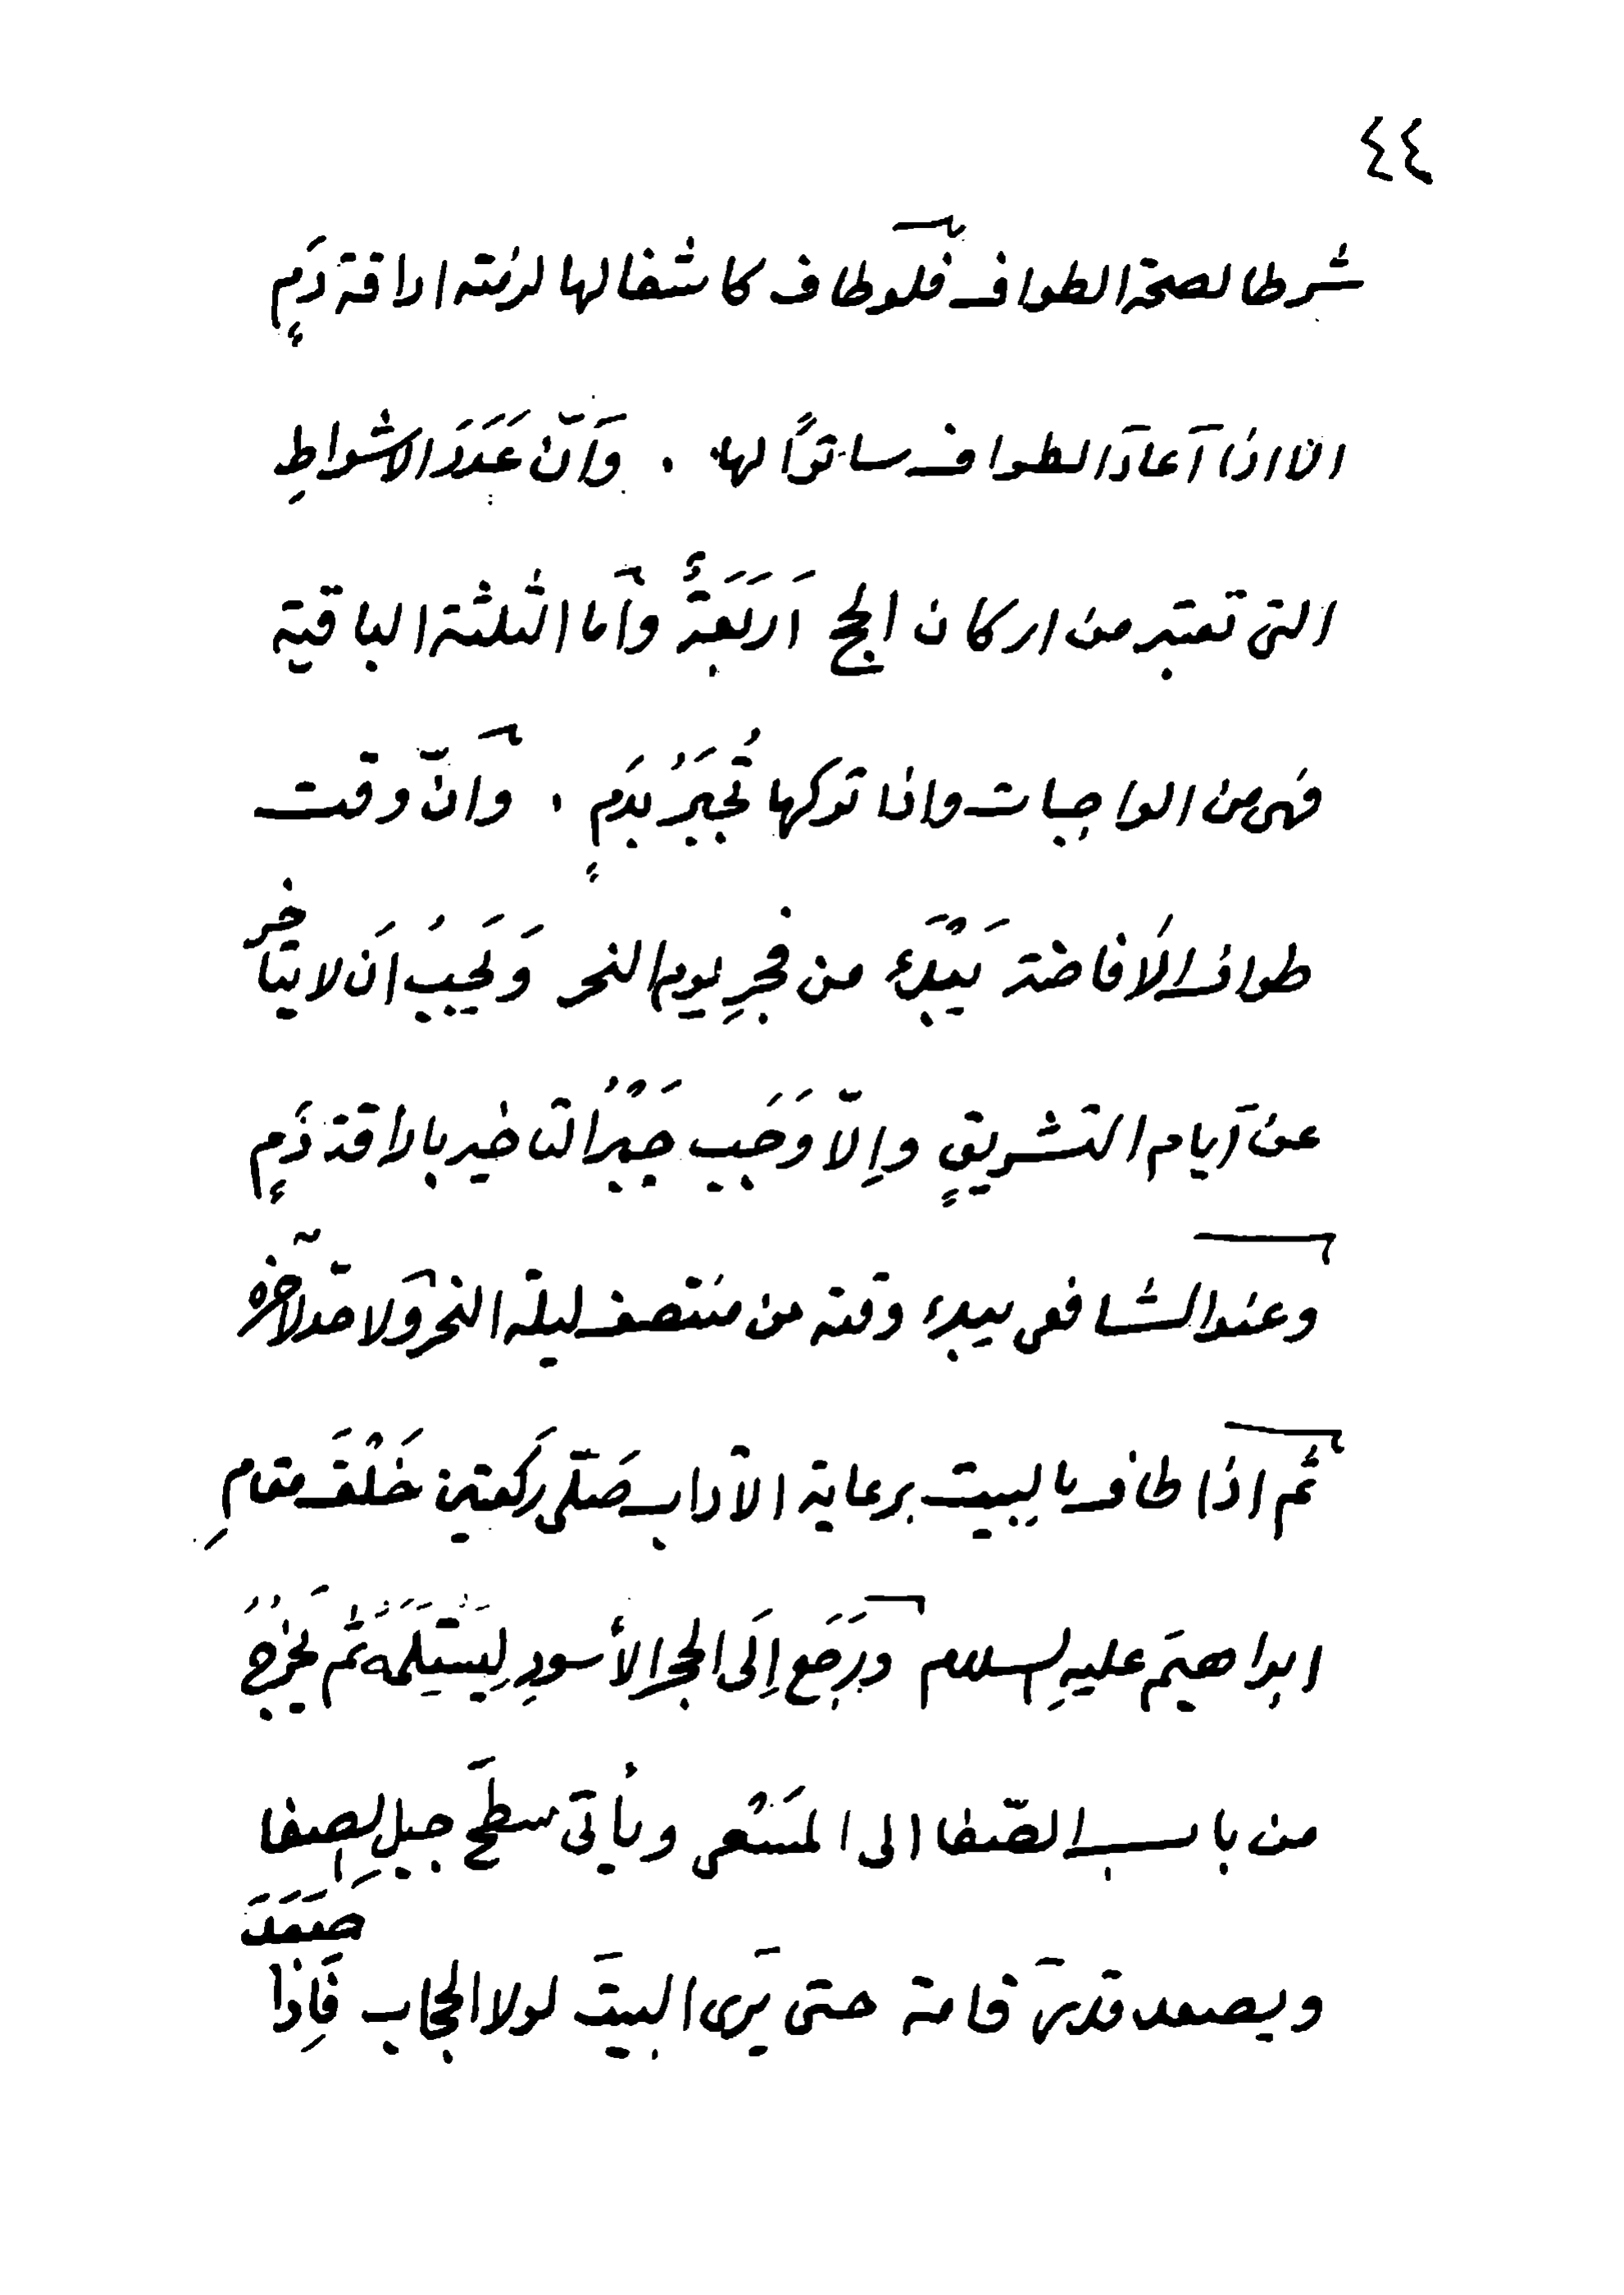 ٤٤
شرطا لصحة الطواف فلو طاف كاشفا لها لزمته اراقة دَمٍ
الا اذا اَعادَ الطواف ساترًا لها . وَاَنّ عَدَدَ الاشواطِ
التى تعتبر من اركان الحج اَربَعَةٌ واَما الثلثة الباقية
فهى من الواجبات واذا تركها تُجبَرُ بدَمٍ . وَانّ وقت
طواف الاَفاضة يَبْدَء من فجرِ يوم النحر وَيَجبُ اَن لا يتأخر
عن اَيام التشريقٍ واِلّا وَجَب جَبْرُ التاخير باراقة دَمٍ
وعند الشافعى يبدء وقته من منتصف ليلة النحر وَلا حدّ لآخره
ثم اذا طاف بالبيت برعاية الآداب صَلّى ركَعتين خَلْفَ مقامِ
ابراهيمَ عليهِ السلام ورَجَع اِلَى الحجر الأسودِ لِيَسْتَلِمَهُ ثُم يَخرُجُ
من باب الصّفا الى المَسْعى ويأتى سطحَ جبلِ الصفا
ويصعد قدرَ قامة حتى يَرى البيتَ لولا الحجاب فَاِذا صَعَدَ